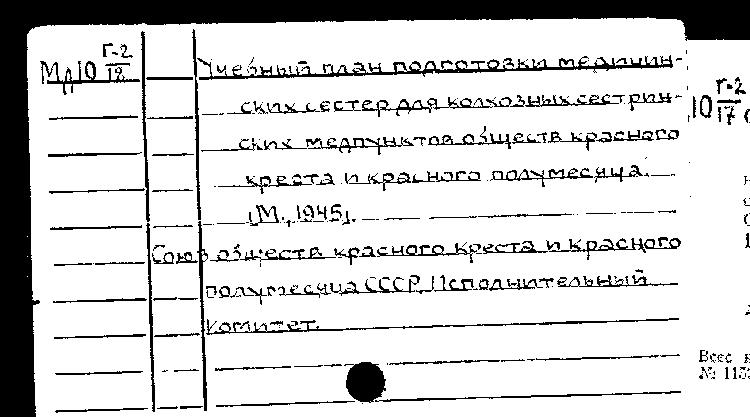 МД10 Г-2/18
Учебный план подготовки медицин-
ских сестер для колхозных сестрин-
ских медпунктов обществ красного
креста и красного полумесяца.
[М., 1945].
Союз обществ красного креста и красного
полумесяца СССР. Исполнительный
комитет.
10 Г-2/17
Всес
№ 115